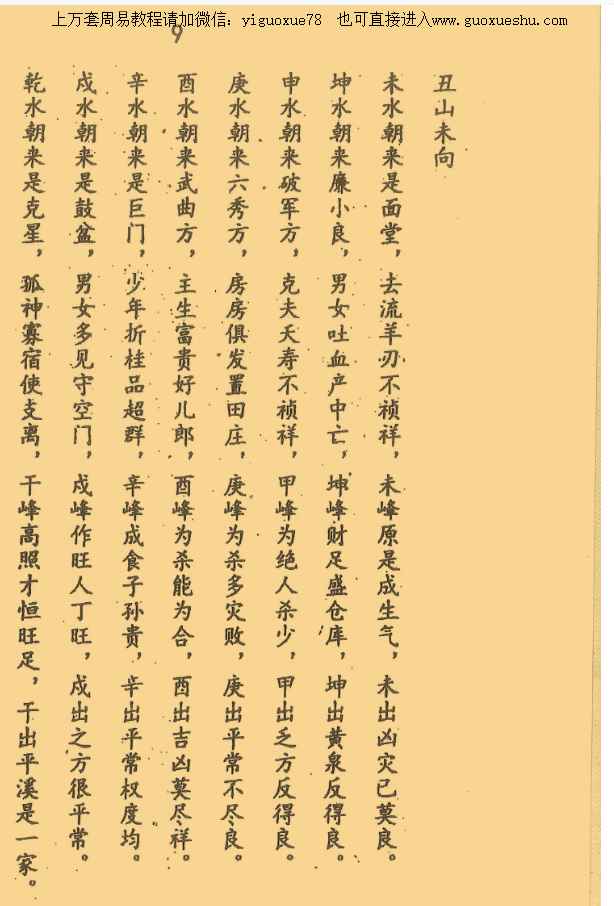 上万套周易教程请加微信：yiguoxue78 也可直接进入www.guoxueshu.com
9
丑山未向
未水朝来是面堂，去流羊刃不祯祥，未峰原是成生气，未出凶灾已莫良。
坤水朝来廉小良，男女吐血产中亡，坤峰财足盛仓库，坤出黄泉反得良。
申水朝来破军方，克夫夭寿不祯祥，甲峰为绝人杀少，甲出乏方反得良。
庚水朝来六秀方，房房俱发置田庄，庚峰为杀多灾败，庚出平常不尽良。
酉水朝来武曲方，主生富贵好儿郎，酉峰为杀能为合，酉出吉凶莫尽祥。
辛水朝来是巨门，少年折桂品超群，辛峰成食子孙贵，辛出平常权度均。
戍水朝来是鼓盆，男女多见守空门，戍峰作旺人丁旺，戍出之方很平常。
乾水朝来是克星，孤神寡宿使支离，干峰高照才恒旺足，干出平溪是一家。